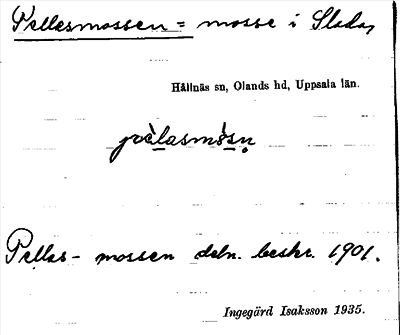 Pellesmossen = mosse i Slada,
Hållnäs sn, Olands hd, Uppsala län.
pèlasmòsn̥
Pellas- mossen deln. beskr. 1901.
Ingegärd Isaksson 1935.